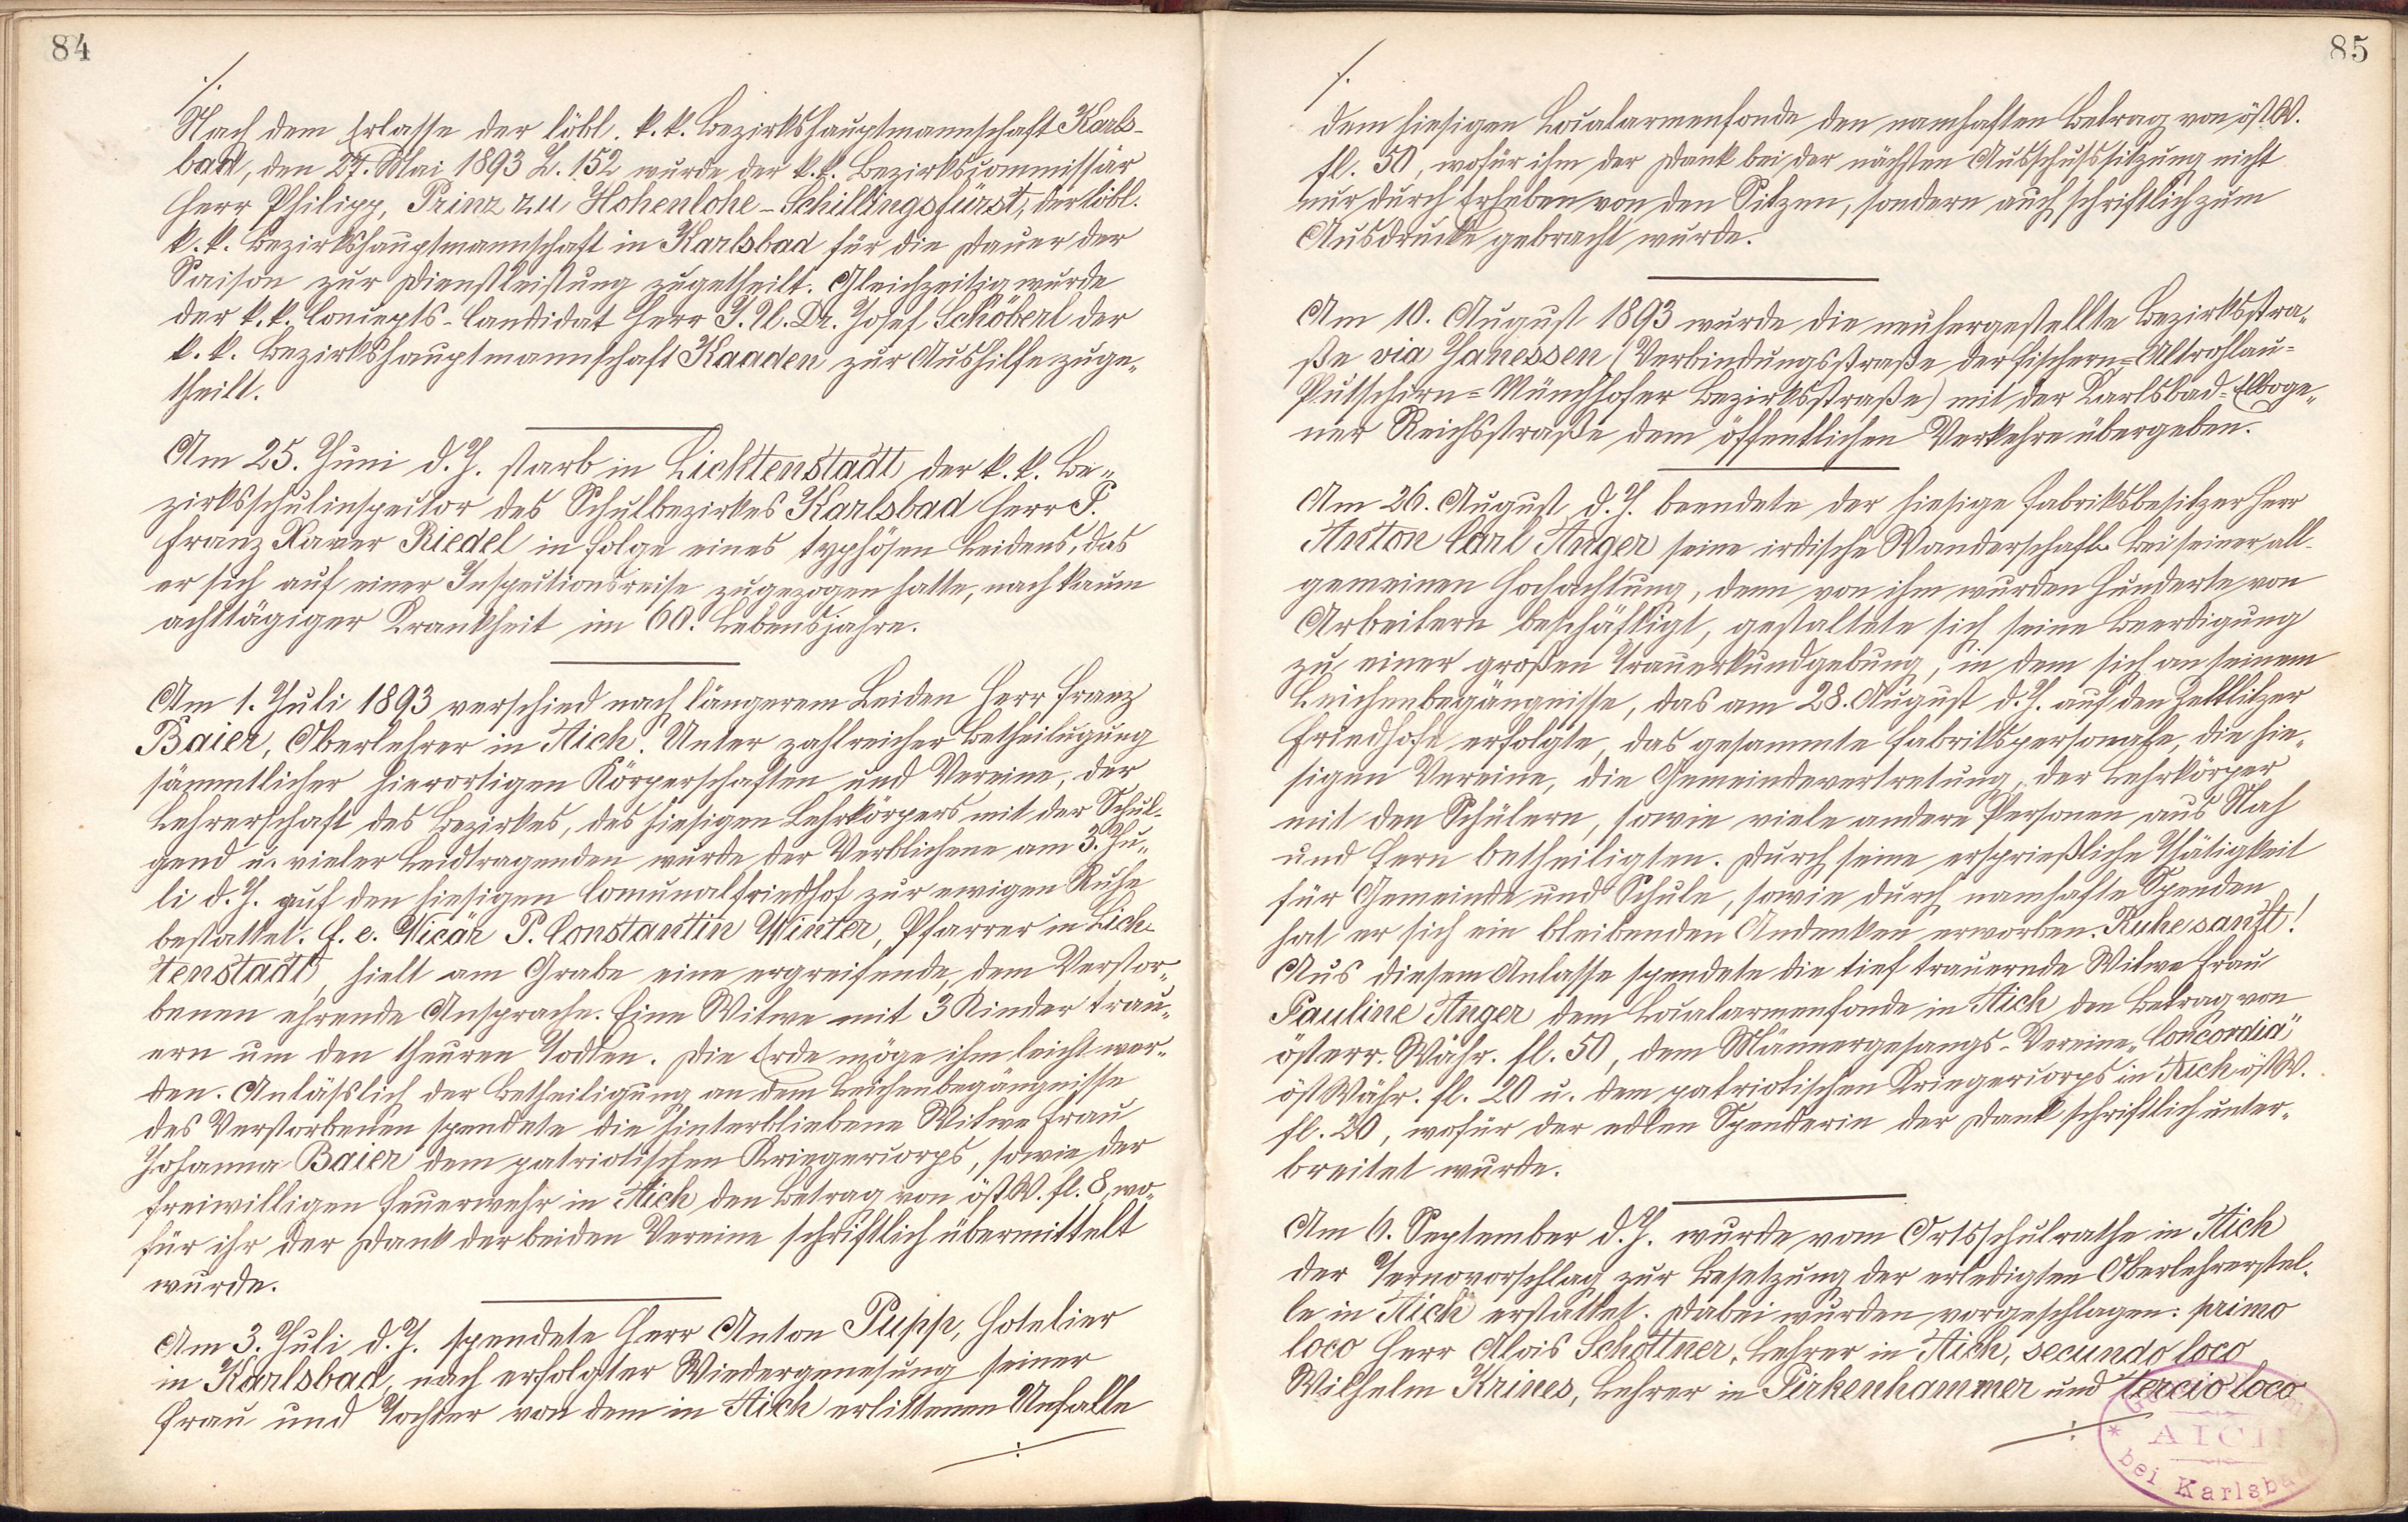 84
./.
Nach dem Erlasse der löbl. k. k. Bezirkshauptmannschaft Karls-
bad, den 27. Mai 1893 Z. 152 wurde der k. k. Bezirkscommissär
Herr Philipp, Prinz zu Hohenlohe-Schillingsfürst, der löbl.
k. k. Bezirkshauptmannschaft in Karlsbad für die Dauer der
Saison zur Dienstleistung zugetheilt. Gleichzeitig wurde
der k. k. Concepts-Candidat Herr J. U. Dr. Josef Schöberl der
k. k. Bezirkshauptmannschaft Kaaden zur Aushilfe zuge-
theilt.
Am 25. Juni d. J. starb in Lichtenstadt der k. k. Be-
zirksschulinspector des Schulbezirkes Karlsbad Herr P.
Franz Xaver Riedel in Folge eines typhösen Leidens, das
er sich auf einer Inspectionsreise zugezogen hatte, nach kaum
achttägiger Krankheit im 60. Lebensjahre.
Am 1. Juli 1893 verschied nach längerem Leiden Herr Franz
Baier, Oberlehrer in Aich. Unter zahlreicher Betheiligung
sämmtlicher hierortigen Körperschaften und Vereine, der
Lehrerschaft des Bezirkes, des hiesigen Lehrkörpers mit der Schul-
gend u. vieler Leidtragenden wurde der Verblichene am 3. Ju-
li d. J. auf den hiesigen Comunalfriedhof zur ewigen Ruhe
bestattet. f. e. Vicär P. Constantin Winter, Pfarrer in Lich-
tenstadt, hielt am Grabe eine ergreifende, dem Verstor-
benen ehrende Ansprache. Eine Witwe mit 3 Kinder trau-
ern um den theuren Todten. Die Erde möge ihm leicht wer-
den. Anläßlich der Betheiligung an dem Leichenbegängnisse
des Verstorbenen spendete die hinterbliebene Witwe Frau
Johanna Baier dem patriotischen Kriegercorps, sowie der
freiwilligen Feuerwehr in Aich den Betrag von öst W. fl. 8, wo-
für ihr der Dank der beiden Vereine schriftlich übermittelt
wurde.
Am 3. Juli d. J. spendete Herr Anton Pupp, Hotelier
in Karlsbad, nach erfolgter Wiedergenesung seiner
Frau und Tochter von dem in Aich erlittenen Unfalle
./.
85
./.
dem hiesigen Localarmenfonde den namhaften Betrag von öst W.
fl. 50, wofür ihm der Dank bei der nächsten Ausschußsitzung nicht
nur durch Erheben von den Sitzen, sondern auch schriftlich zum
Ausdrucke gebracht wurde.
Am 10. August 1893 wurde die neuhergestellte Bezirksstra-
ße via Janessen (Verbindungsstraße der Fischern-Altrohlau-
Putschirn-Münchhofer Bezirksstraße) mit der Karlsbad-Elboge-
ner Reichsstraße dem öffentlichen Verkehre übergeben.
Am 26. August d. J. beendete der hiesige Fabriksbesitzer Herr
Anton Carl Anger seine irdische Wanderschaft. Bei seiner all-
gemeinen Hochachtung, denn von ihm wurden Hunderte von
Arbeitern beschäftigt, gestaltete sich seine Beerdigung
zu einer großen Trauerkundgebung, in dem sich an seinem
Leichenbegängnisse, das am 28. August d. J. auf den Zettlitzer
Friedhofe erfolgte, das gesammte Fabrikspersonale, die hie-
sigen Vereine, die Gemeindevertretung, der Lehrkörper
mit den Schülern, sowie viele andere Personen aus Nah
und Fern betheiligten. Durch seine ersprießliche Thätigkeit
für Gemeinde und Schule, sowie durch namhafte Spenden
hat er sich ein bleibenden Andenken erworben. Ruhe sanft!
Aus diesem Anlasse spendete die tief trauernde Witwe Frau
Pauline Anger dem Localarmenfonde in Aich den Betrag von
österr. Währ. fl. 50, dem Männergesangs-Vereine „Concordia"
öst Währ. fl. 20 u. dem patriotischen Kriegercorps in Aich öst W.
fl. 20, wofür der edlen Spenderin der Dank schriftlich unter-
breitet wurde.
Am 6. September d. J. wurde vom Ortsschulrathe in Aich
der Ternovorschlag zur Besetzung der erledigten Oberlehrerstel-
le in Aich erstattet. Dabei wurden vorgeschlagen: primo
loco Herr Alois Schottner, Lehrer in Aich, secundo loco
Wilhelm Krines, Lehrer in Pirkenhammer und tercio loco
./.
AICH
bei Karlsbad